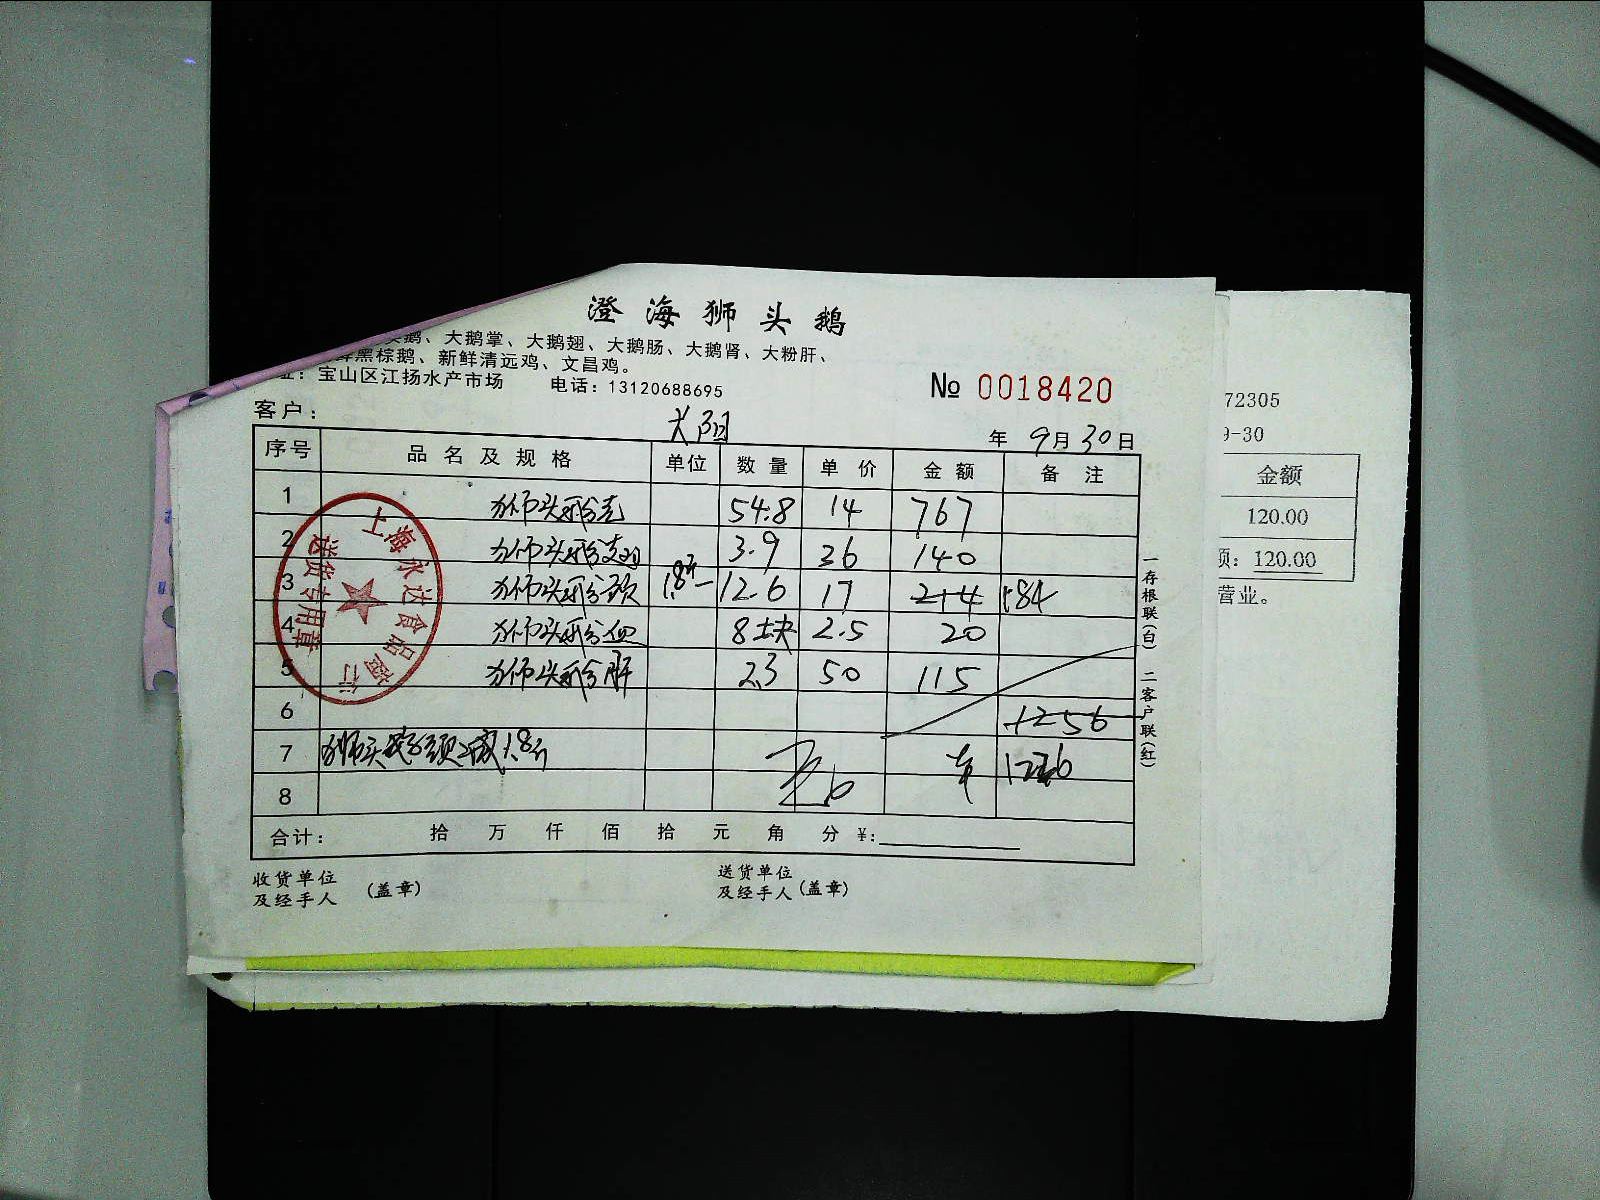 澄海狮头鹅
头鹅、大鹅掌、大鹅翅、大鹅肠、大鹅肾、大粉肝、
鲜黑棕鹅、新鲜清远鸡、文昌鸡。
址：宝山区江扬水产市场 电话：13120688695
№ 0018420
客户：
年 9月30日
序号 品名及规格 单位 数量 单价 金额 备注
1 狮头鹅壳 54.8 14 767
2 狮头鹅翅 3.9 36 140
3 狮头鹅颈 1.8斤 12.6 17 214 184
4 狮头鹅血 8块 2.5 20
5 狮头鹅肝 2.3 50 115
6 1256
7 狮头鹅颈减1.8斤
8
合计： 拾 万 仟 佰 拾 元 角 分 ¥：
收货单位
及经手人 （盖章）
送货单位
及经手人（盖章）
一存根联（白） 二客户联（红）
上海永达食品商行
送货专用章
72305
9-30
金额
120.00
额：120.00
营业。